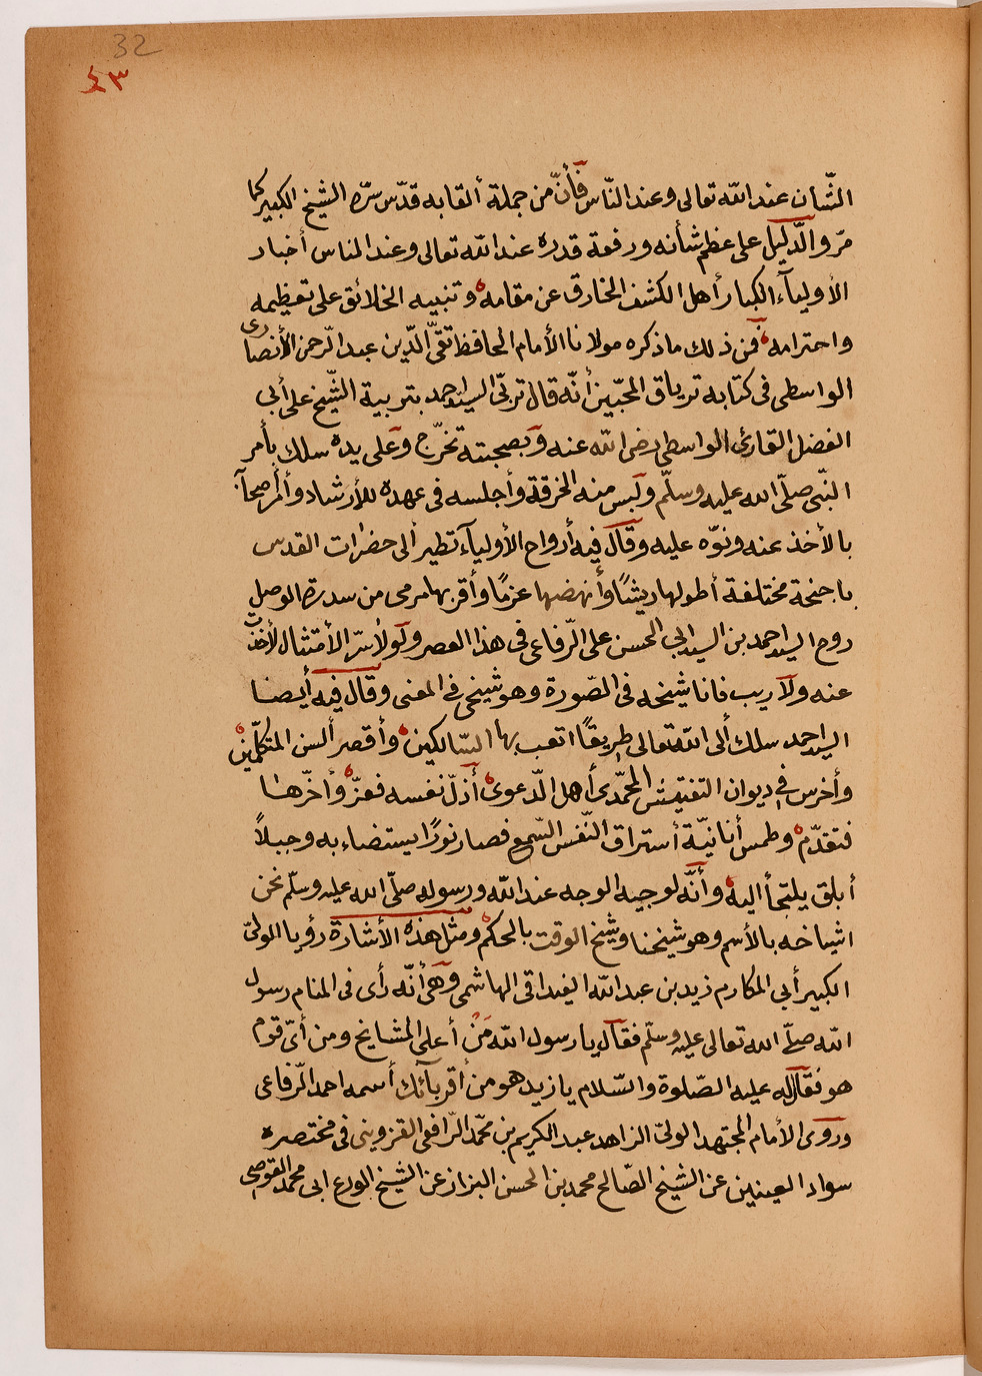 32
٤٣
الشّان عند الله تعالى وعند النّاس فأنّ من جملة ألقابه قدّس سرّه الشيخ الكبير كما
مرّ والدّليل على عظم شأنه ورفعة قدره عند الله تعالى وعند الناس أخبار
الأوليآء الكبار أهل الكشف الخارق عن مقامه وتنبيه الخلائق على تعظيمه
واحترامه فمن ذلك ما ذكره مولانا الأمام الحافظ تقيّ الدّين عبد الرّحمن الأنصارى
الواسطى فى كتابه ترياق المحبّين أنّه قال تربّى السيد احمد بتربية الشّيخ على أبي
الفضل القارئ الواسطى رضى الله عنه وبصحبته تخرّج وعلى يده سلك بأمر
النّبى صلّى الله عليه وسلّم ولبس منه الخرقة وأجلسه فى عهده للأرشاد وأمر أصحابه
بالأخذ عنه ونوّه عليه وقال فيه أرواح الأوليآء تطير ألى حضرات القدس
باجنحة مختلفة أطولها ريشًا وأنهضها عزمًا وأقربها مرمى من سدرة الوصل
روح السيد احمد بن السيد ابى الحسن على الرّفاعى فى هذا العصر ولولا سرّ الأمتثال لأخذت
عنه ولا ريب فانا شيخه فى الصّورة وهو شيخى فى المعنى وقال فيه أيضا
السيد احمد سلك ألى الله تعالى طريقًا اتعب بها السّالكين وأقصر ألسن المتكلّمين
وأخرس فى ديوان التفتيش المحمّدى أهل الدّعوى أذلّ نفسه فعزّ وأخّرها
فتقدّم وطمس أنانيّة أستراق النّفس السّمع فصار نورًا يستضاء به وجبلاً
أبلق يلتجأ اليه وأنّه لوجيه الوجه عند الله ورسوله صلّى الله عليه وسلّم نحن
اشياخه بالأسم وهو شيخنا وشيخ الوقت بالحكم ومثل هذه الأشارة رؤيا المولى
الكبير أبي المكارم زيد بن عبد الله الغيداقى الهاشمى وهى أنّه رأى فى المنام رسول
الله صلّى الله تعالى عليه وسلّم فقال يا رسول الله مَنْ أعلى المشايخ ومن أىّ قوم
هو فقال له عليه الصّلوة والسّلام يا زيد هو من أقربآئك أسمه احمد الرّفاعى
وروى الأمام المجتهد الولىّ الزاهد عبد الكريم بن محمّد الرّافعى القزوينى فى مختصره
سواد العينين عن الشيخ الصّالح محمد بن الحسن البزاز عن الشيخ الورع ابى محمد القوصى